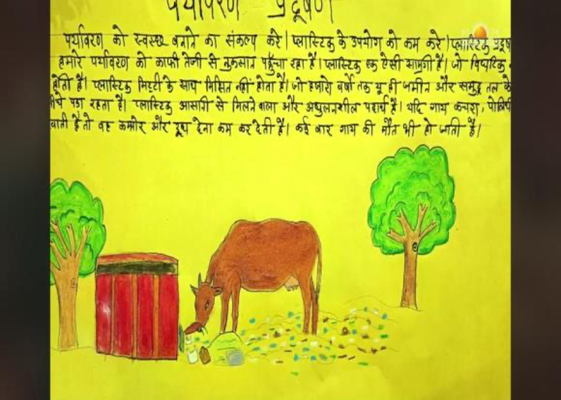 पर्यावरण प्रदूषण
पर्यावरण को स्वस्थ बनाने का संकल्प करे। प्लास्टिक के उपयोग को कम करे। प्लास्टिक
हमारे पर्यावरण को काफी तेजी से नुकसान पहुँचा रहा है। प्लास्टिक एक ऐसी सामग्री है। जो
होती है। प्लास्टिक मिट्टी के साथ मिश्रित नहीं होता है। जो हजारो वर्षो तक यू ही जमीन और समुद्र तल के
पड़ा रहता है। प्लास्टिक आसानी से मिलने वाला और अघुलनशील पदार्थ है। यदि गाय कचरा,
खाती है तो वह कमजोर और दूध देना कम कर देती है। कई बार गाय की मौत भी हो जाती है।